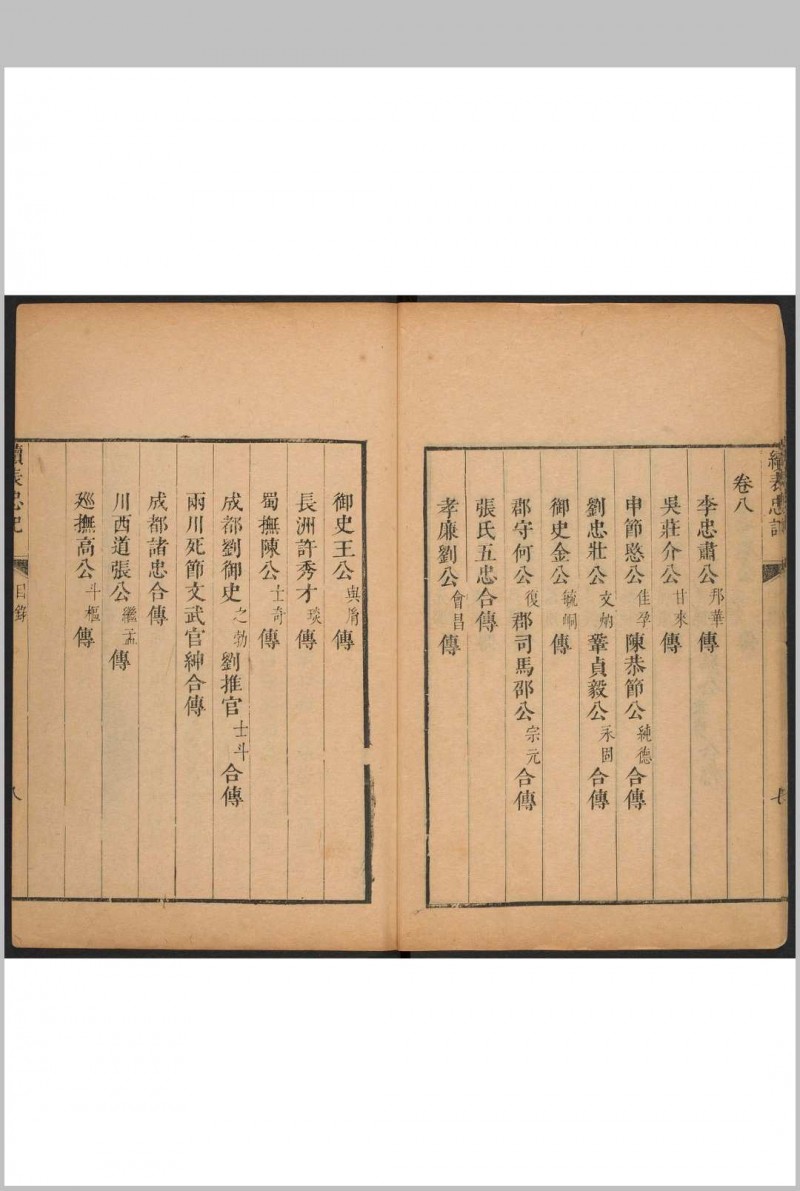 續表忠記
七
卷八
李忠肅公邦華傳
吳莊介公甘來傳
申節愍公佳孕陳恭節公純德合傳
劉忠壯公文炳鞏貞毅公永固合傳
御史金公毓峒傳
郡守何公復郡司馬邵公宗元合傳
張氏五忠合傳
孝廉劉公會昌傳
御史王公與胤傳
長洲許秀才琰傳
蜀撫陳公士奇傳
成都劉御史之勃劉推官士斗合傳
兩川死節文武官紳合傳
成都諸忠合傳
川西道張公繼孟傳
廵撫高公斗樞傳
續表忠記
目錄
八